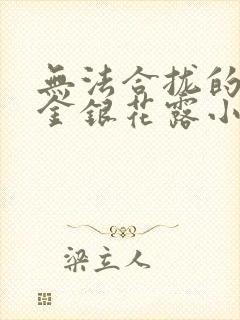 無法合拢的
金銀花露小
梁立人